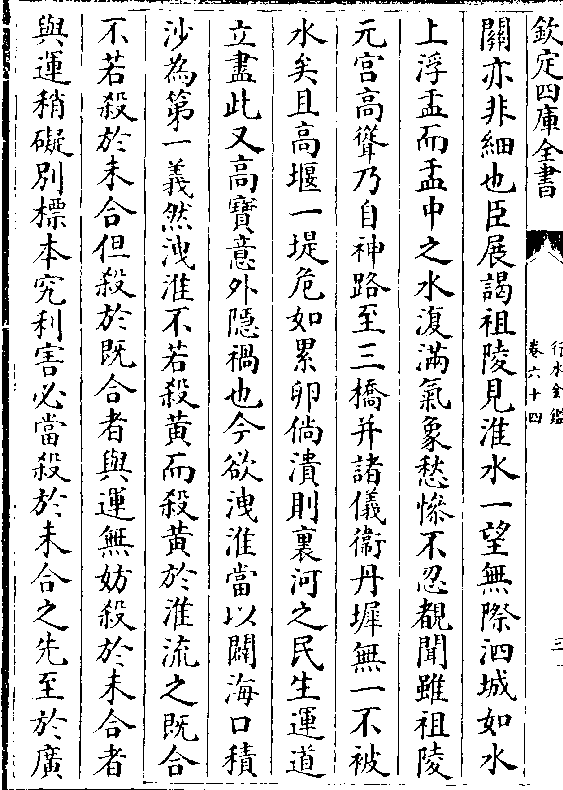 欽定四庫全書
行水金鑑
卷六十四
三
關亦非細也臣展謁祖陵見淮水一望無際泗城如水
上浮盂而盂中之水復滿氣象愁慘不忍覩聞雖祖陵
元宫高聳乃自神路至三橋并諸儀衞丹墀無一不被
水矣且高堰一堤危如累卵倘潰則裏河之民生運道
立盡此又高寶意外隠禍也今欲洩淮當以闢海口積
沙為第一義然洩淮不若殺黄而殺黄於淮流之既合
不若殺於未合但殺於既合者與運無妨殺於未合者
與運稍礙别標本究利害必當殺於未合之先至於廣